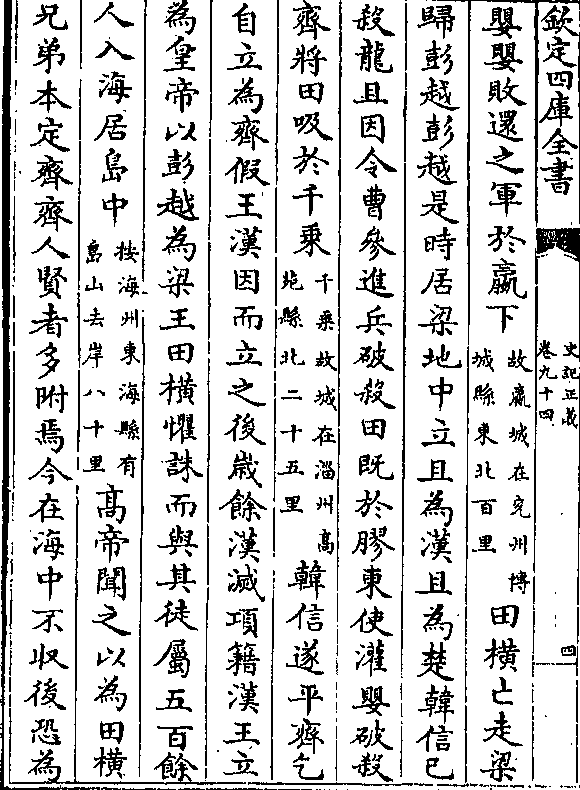 欽定四庫全書
史記正義
卷九十四
四
嬰嬰敗還之軍於嬴下故嬴城在兖州博城縣東北百里田橫亡走梁
歸彭越彭越是時居梁地中立且為漢且為楚韓信已
殺龍且因令曹參進兵破殺田既於膠東使灌嬰破殺
齊將田吸於千乘千乘故城在淄州髙苑縣北二十五里韓信遂平齊乞
自立為齊假王漢因而立之後嵗餘漢滅項籍漢王立
為皇帝以彭越為梁王田橫懼誅而與其徒屬五百餘
人入海居島中按海州東海縣有島山去岸八十里髙帝聞之以為田橫
兄弟本定齊齊人賢者多附焉今在海中不收後恐為